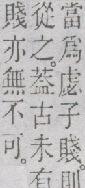 當爲虙子賤。則
從之。葢古未有
賤亦無不可。